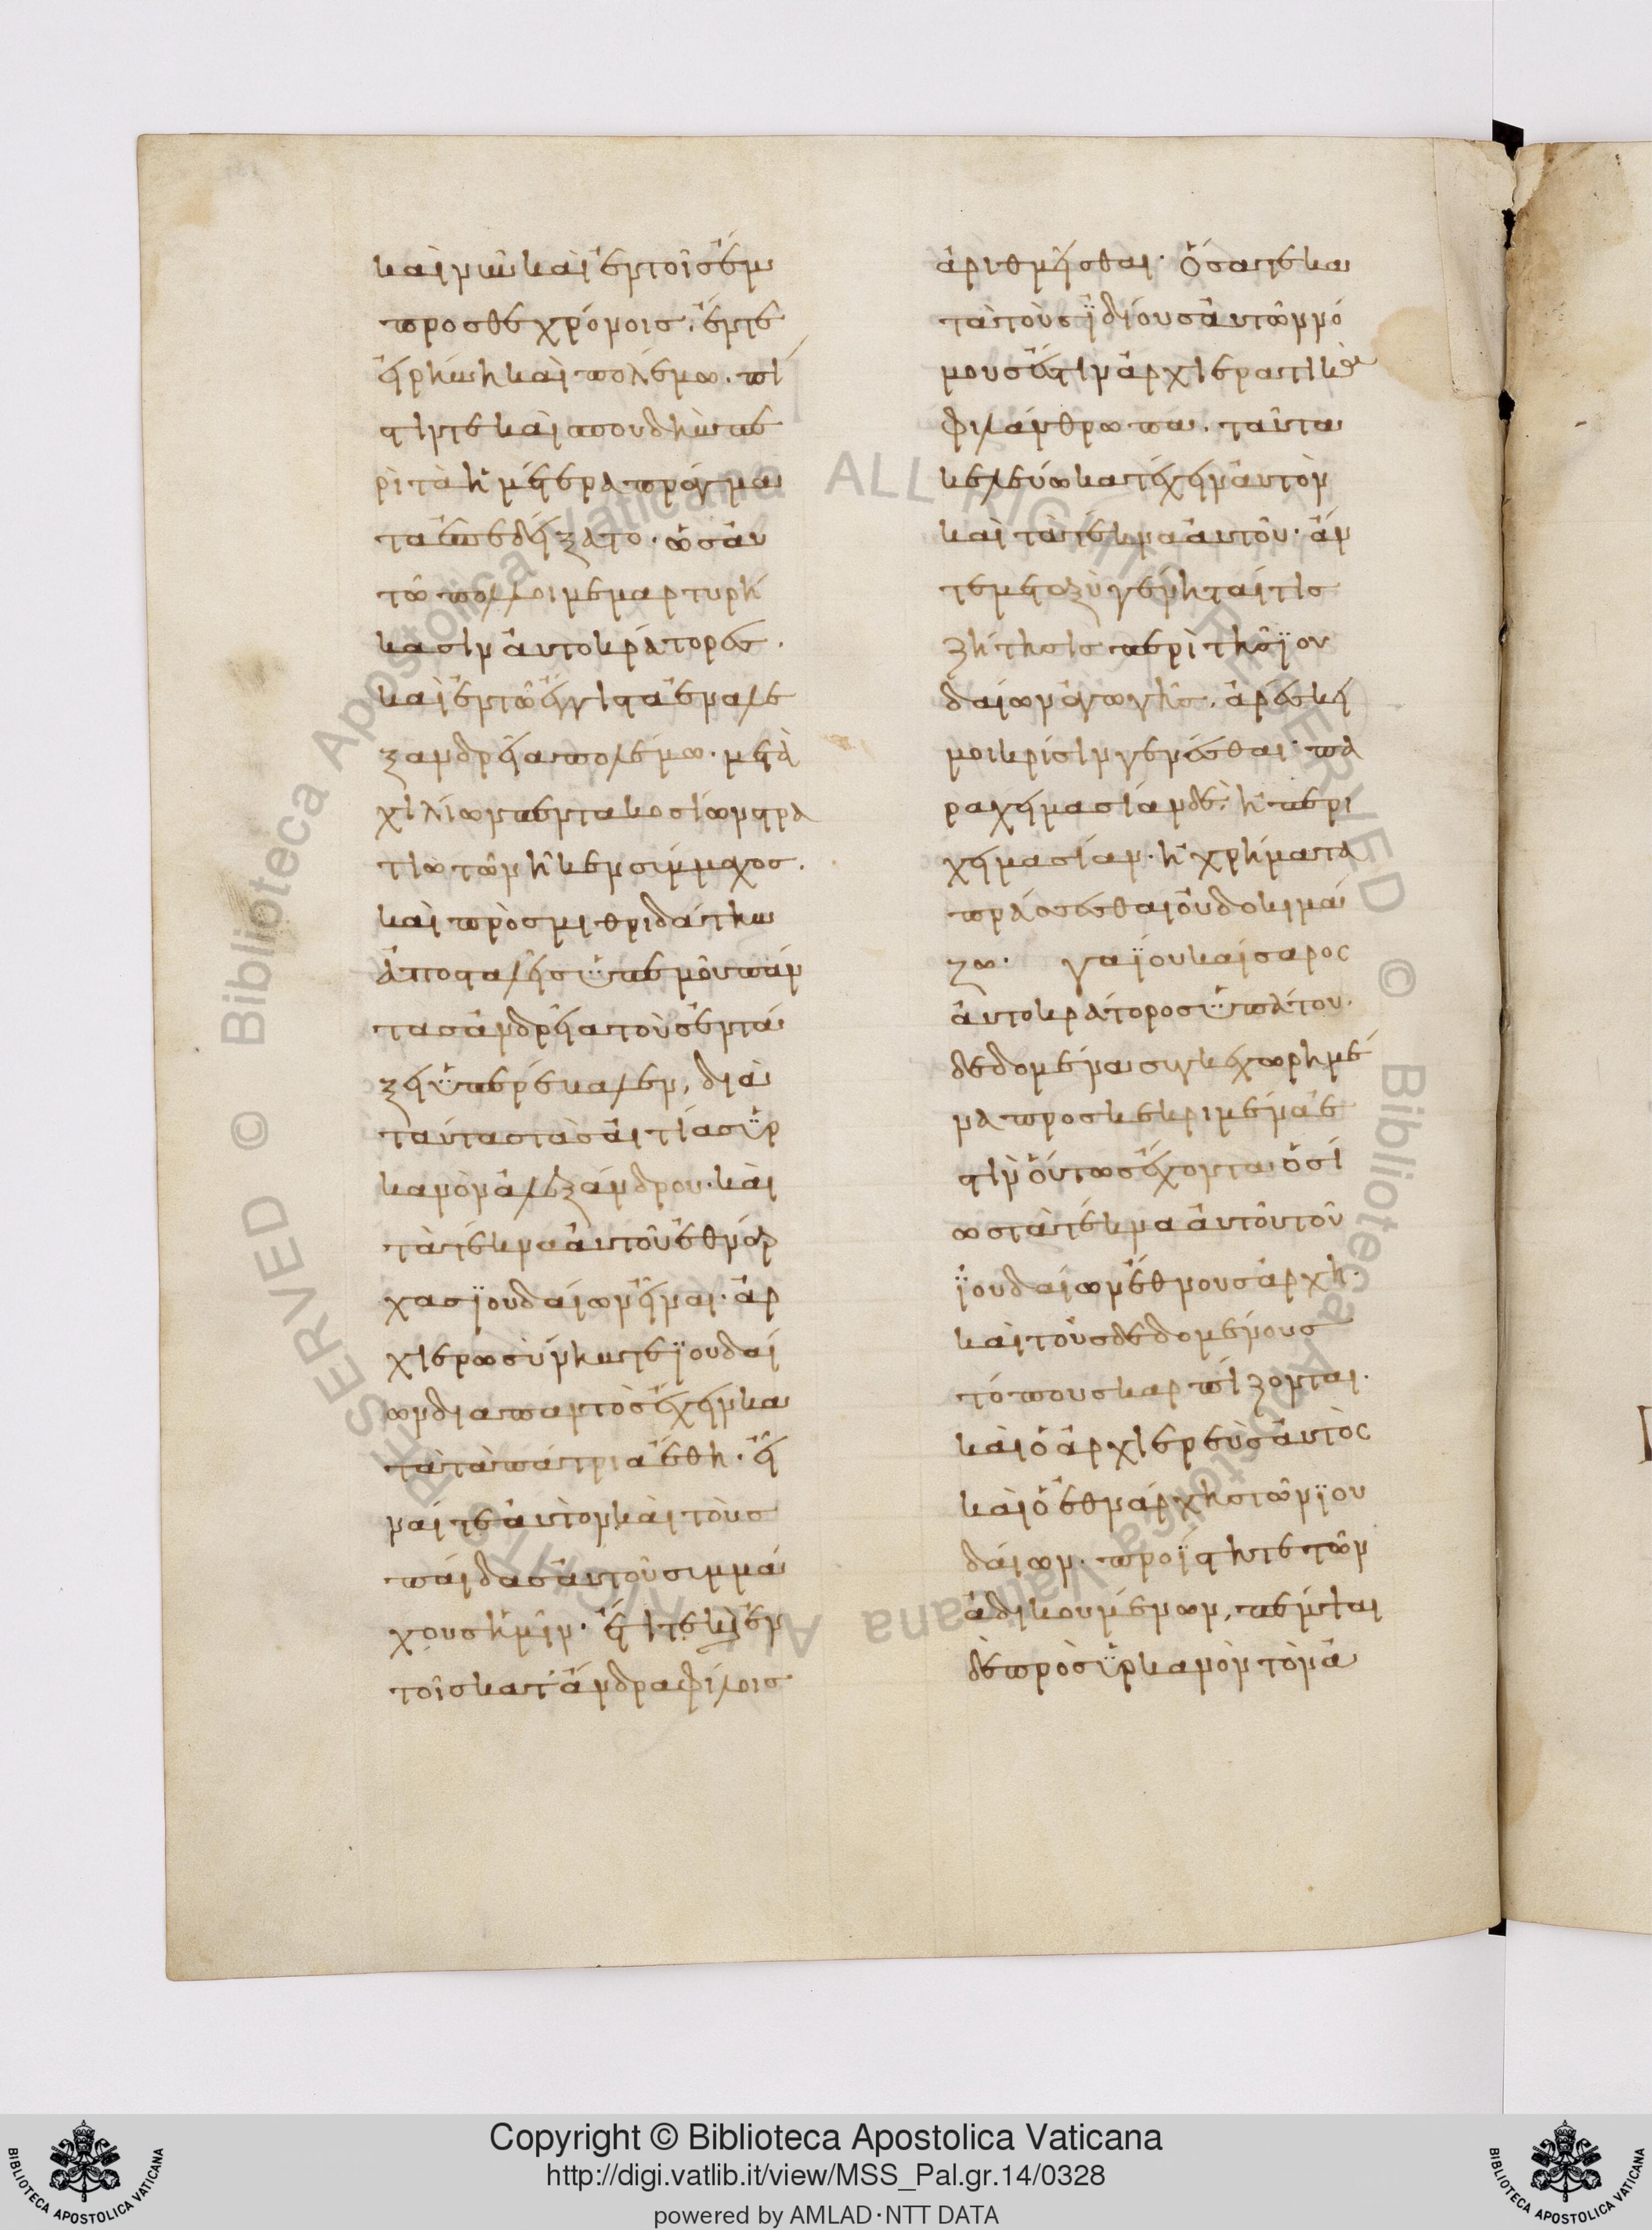 καὶ νῦν καὶ ἐν τοῖς ἔμ
προσθε χρόνοις, ἔν τε
εἰρήνη καὶ πολέμω. πί
στιν τε καὶ σπουδὴν πε
ρὶ τὰ ἡμέτερα πράγμα
τα ἐπεδείξατο. ὡς αὐ
τῶ πολλοὶ μεμαρτυρή
κασιν αὐτοκράτορες.
καὶ ἐν τῶ ἔγγιστα ἐν ἀλε
ξανδρεία πολέμω. μετὰ
χιλίων πεντακοσίων στρα
τιωτῶν ἧκεν σύμμαχος.
καὶ πρὸς μιθριδάτην
ἀποσταλεὶς ὑπ' ἐμοῦ πάν
τας ἀνδρεία τοὺς ἐν τά
ξει ὑπερέβαλεν, διὰ
ταύτας τὰς αἰτίας ὑρ
κανὸν ἀλεξάνδρου. καὶ
τὰ τέκνα αὐτοῦ ἐθνάρ
χας ϊουδαίων εἶναι. ἀρ
χιερωσύνην τε ϊουδαί
ων διαπαντὸς ἔχειν κα
τὰ τὰ πάτρια ἔθη. εἶ
ναί τε αὐτὸν καὶ τοὺς
παῖδας αὐτοῦ συμμά
χους ἡμῖν. ἔτι τε καὶ ἐν
τοῖς κατ' ἄνδρα φίλοις
ἀριθμεῖσθαι. ὅσα τε κα
τὰ τοὺς ϊδίους αὐτῶν νό
μους ἐστὶν ἀρχιερατικὰ
φιλάνθρωπα. ταῦτα
κελεύω κατέχειν αὐτὸν
καὶ τὰ τέκνα αὐτοῦ. ἄν
τε μεταξὺ γένηταί τις
ζήτησις περὶ τῆς ϊου
δαίων ἀγωγῆς, ἀρέσκει
μοι κρίσιν γενέσθαι. πα
ραχειμασίαν δὲ, ἢ περι
χειμασίαν. ἢ χρήματα
πράσσεσθαι οὐ δοκιμά
ζω. γαΐου καίσαρος
αὐτοκράτορος ὑπάτου.
δεδομένα συγκεχωρημέ
να προσκεκριμένα ἐ
στὶν οὕτως ἔχοντα ὅσί
ως τὰ τέκνα αὐτοῦ τοῦ
ϊουδαίων ἔθνους ἄρχη.
καὶ τοὺς δεδομένους
τόπους καρπίζονται.
καὶ ὁ ἀρχιερεὺς αὐτὸς
καὶ ὁ ἐθνάρχης τῶν ϊου
δαίων. προϊστῆται τῶν
ἀδικουμένων, πέμψαι
δὲ πρὸς ὑρκανὸν τὸν ἀ
Copyright © Biblioteca Apostolica Vaticana
http://digi.vatlib.it/view/MSS_Pal.gr.14/0328
powered by AMLAD·NTT DATA